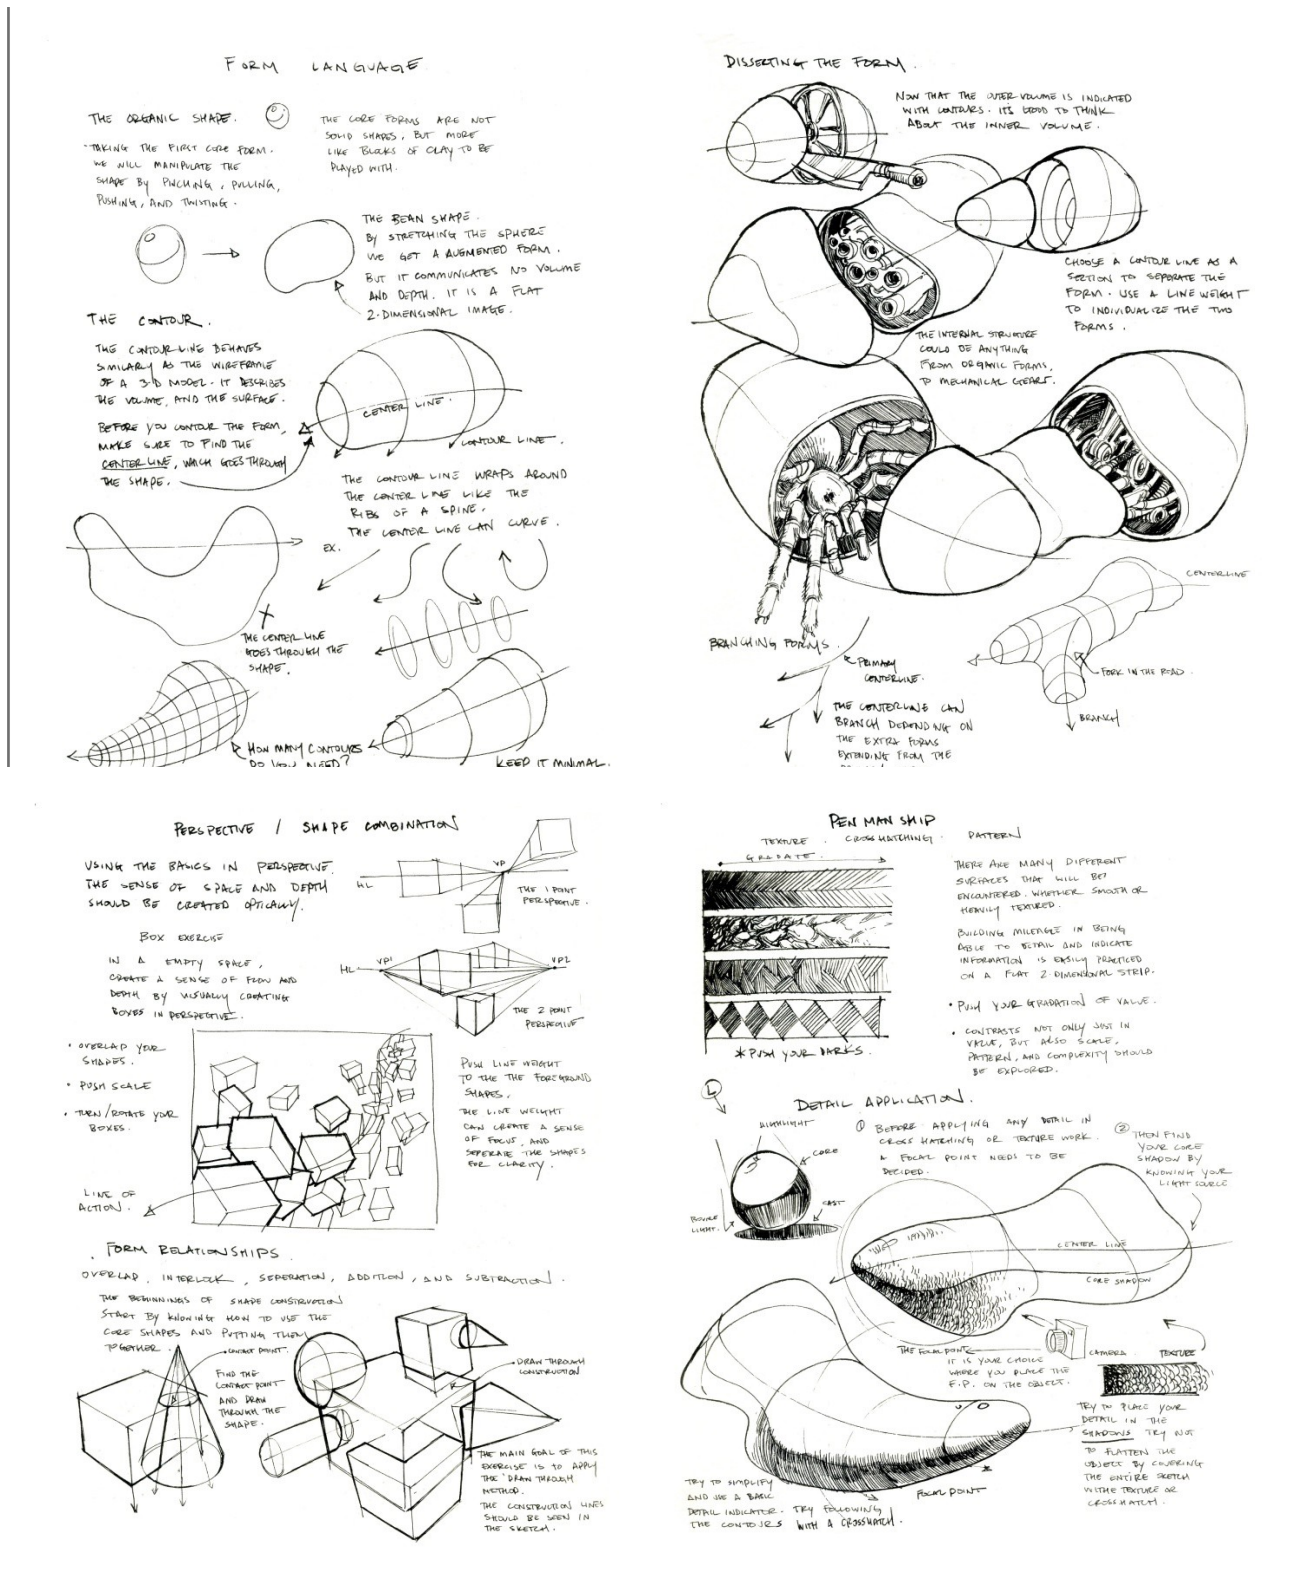 FORM LANGUAGE
THE ORGANIC SHAPE.
TAKING THE FIRST CORE FORM.
WE WILL MANIPULATE THE
SHAPE BY PINCHING, PULLING,
PUSHING, AND TWISTING.
THE CORE FORMS ARE NOT
SOLID SHAPES, BUT MORE
LIKE BLOCKS OF CLAY TO BE
PLAYED WITH.
THE BEAN SHAPE.
BY STRETCHING THE SPHERE
WE GET A AUGMENTED FORM.
BUT IT COMMUNICATES NO VOLUME
AND DEPTH. IT IS A FLAT
2-DIMENSIONAL IMAGE.
THE CONTOUR.
THE CONTOUR LINE BEHAVES
SIMILARLY AS THE WIREFRAME
OF A 3-D MODEL. IT DESCRIBES
THE VOLUME, AND THE SURFACE.
BEFORE YOU CONTOUR THE FORM,
MAKE SURE TO FIND THE
CENTERLINE, WHICH GOES THROUGH
THE SHAPE.
CENTER LINE.
CONTOUR LINE.
THE CONTOUR LINE WRAPS AROUND
THE CENTER LINE LIKE THE
RIBS OF A SPINE.
THE CENTER LINE CAN CURVE.
EX.
THE CENTER LINE
GOES THROUGH THE
SHAPE.
HOW MANY CONTOURS
DO YOU NEED?
KEEP IT MINIMAL.
DISSECTING THE FORM.
NOW THAT THE OUTER VOLUME IS INDICATED
WITH CONTOURS. IT'S GOOD TO THINK
ABOUT THE INNER VOLUME.
CHOOSE A CONTOUR LINE AS A
SECTION TO SEPARATE THE
FORM. USE A LINE WEIGHT
TO INDIVIDUALIZE THE TWO
FORMS.
THE INTERNAL STRUCTURE
COULD BE ANYTHING
FROM ORGANIC FORMS,
TO MECHANICAL GEARS.
CENTERLINE
BRANCHING FORMS.
PRIMARY
CENTERLINE.
FORK IN THE ROAD.
BRANCH
THE CENTERLINE CAN
BRANCH DEPENDING ON
THE EXTRA FORMS
EXTENDING FROM THE
PERSPECTIVE / SHAPE COMBINATION
USING THE BASICS IN PERSPECTIVE.
THE SENSE OF SPACE AND DEPTH
SHOULD BE CREATED OPTICALLY.
HL
VP
THE 1 POINT
PERSPECTIVE.
BOX EXERCISE
IN A EMPTY SPACE,
CREATE A SENSE OF FLOW AND
DEPTH BY VISUALLY CREATING
BOXES IN PERSPECTIVE.
HL
VP1
VP2
THE 2 POINT
PERSPECTIVE
• OVERLAP YOUR
SHAPES.
• PUSH SCALE
• TURN/ROTATE YOUR
BOXES.
LINE OF
ACTION.
PUSH LINE WEIGHT
TO THE THE FOREGROUND
SHAPES.
THE LINE WEIGHT
CAN CREATE A SENSE
OF FOCUS, AND
SEPERATE THE SHAPES
FOR CLARITY.
FORM RELATIONSHIPS.
OVERLAP, INTERLOCK, SEPERATION, ADDITION, AND SUBTRACTION.
THE BEGINNINGS OF SHAPE CONSTRUCTION
START BY KNOWING HOW TO USE THE
CORE SHAPES AND PUTTING THEM
TOGETHER.
CONTACT POINT.
FIND THE
CONTACT POINT
AND DRAW
THROUGH THE
SHAPE.
DRAW THROUGH
CONSTRUCTION
THE MAIN GOAL OF THIS
EXERCISE IS TO APPLY
THE 'DRAW THROUGH'
METHOD.
THE CONSTRUCTION LINES
SHOULD BE SEEN IN
THE SKETCH.
PENMANSHIP
TEXTURE . CROSSHATCHING . PATTERN
GRADATE.
THERE ARE MANY DIFFERENT
SURFACES THAT WILL BE
ENCOUNTERED. WHETHER SMOOTH OR
HEAVILY TEXTURED.
BUILDING MILEAGE IN BEING
ABLE TO DETAIL AND INDICATE
INFORMATION IS EASILY PRACTICED
ON A FLAT 2-DIMENSIONAL STRIP.
• PUSH YOUR GRADATION OF VALUE.
• CONTRASTS NOT ONLY JUST IN
VALUE, BUT ALSO SCALE,
PATTERN, AND COMPLEXITY SHOULD
BE EXPLORED.
*PUSH YOUR DARKS.
L
DETAIL APPLICATION.
HIGHLIGHT
CORE
CAST
BOUNCE
LIGHT.
① BEFORE APPLYING ANY DETAIL IN
CROSS HATCHING OR TEXTURE WORK.
A FOCAL POINT NEEDS TO BE
DECIDED.
② THEN FIND
YOUR CORE
SHADOW BY
KNOWING YOUR
LIGHT SOURCE
CENTER LINE
CORE SHADOW
THE FOCAL POINT
IT IS YOUR CHOICE
WHERE YOU PLACE THE
F.P. ON THE OBJECT.
CAMERA.
TEXTURE
TRY TO PLACE YOUR
DETAIL IN THE
SHADOWS. TRY NOT
TO FLATTEN THE
OBJECT BY COVERING
THE ENTIRE SKETCH
W/THE TEXTURE OR
CROSSHATCH.
FOCAL POINT
TRY TO SIMPLIFY
AND USE A BASIC
DETAIL INDICATOR. TRY FOLLOWING
THE CONTOURS WITH A CROSSHATCH.